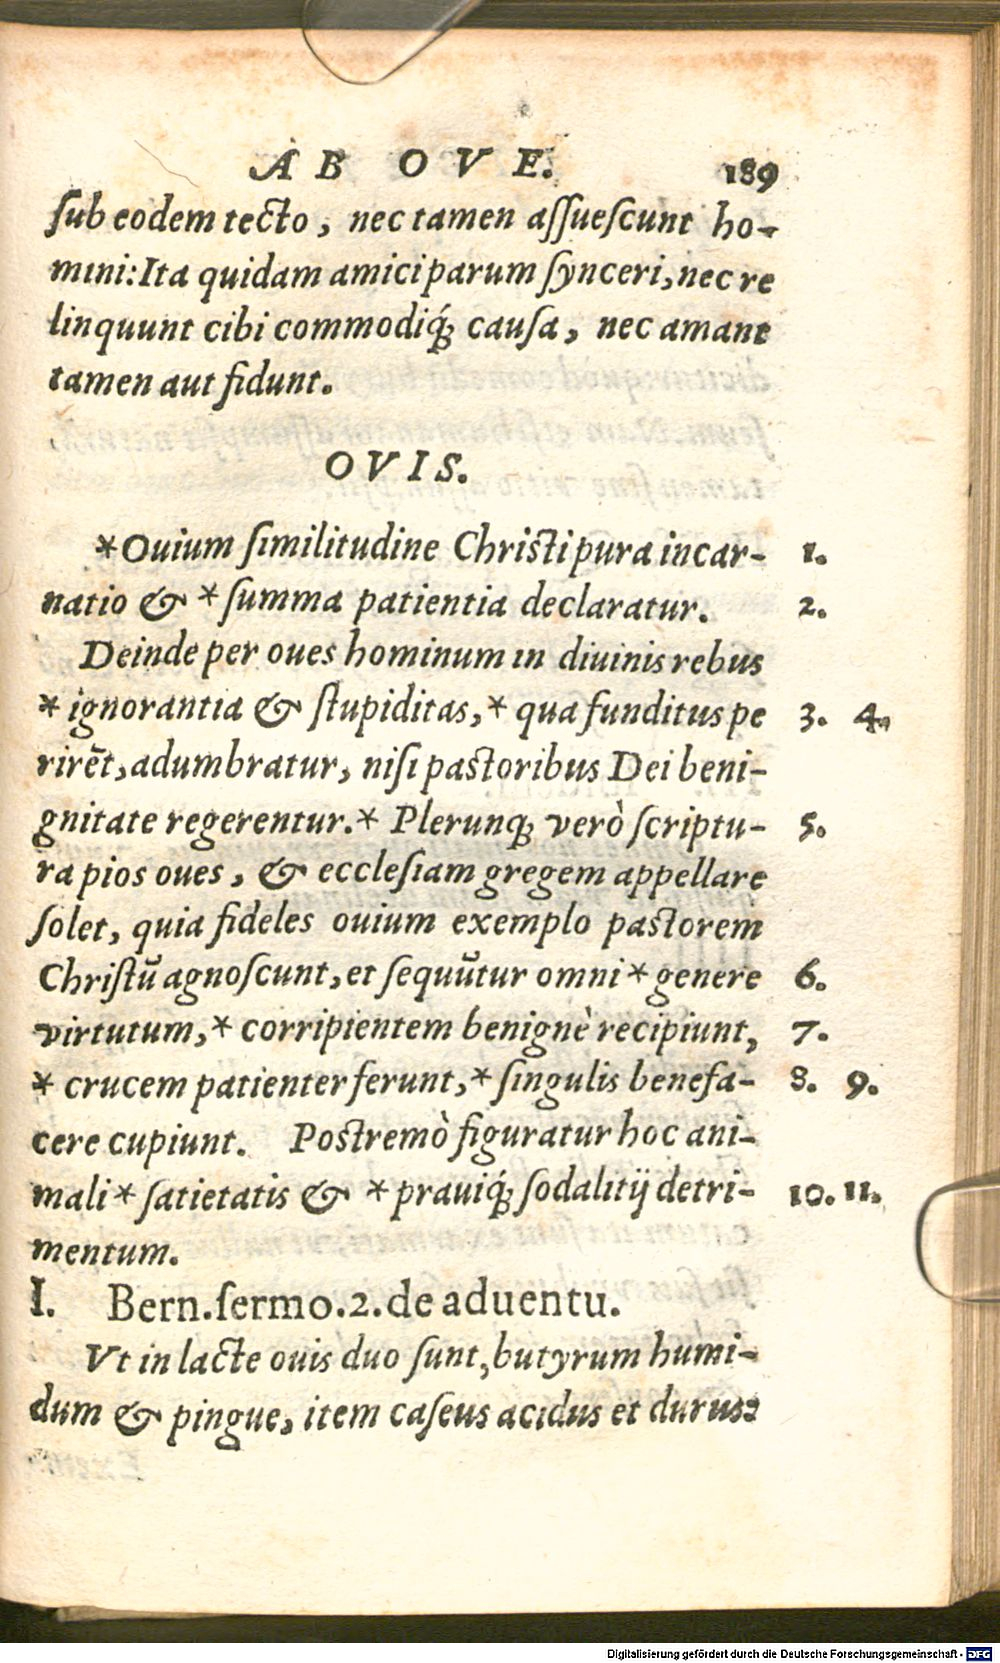 AB OVE. 189
ſub eodem tecto, nec tamen aſſueſcunt ho-
mini: Ita quidam amici parum ſynceri, nec re
linquunt cibi commodiq́; cauſa, nec amant
tamen aut fidunt.
OVIS.
*Ouium ſimilitudine Chriſti pura incar- 1.
natio & *ſumma patientia declaratur. 2.
Deinde per oues hominum in diuinis rebus
* ignorantia & ſtupiditas,* qua funditus pe 3. 4.
rirẽt, adumbratur, niſi paſtoribus Dei beni-
gnitate regerentur.* Plerunq; verò ſcriptu- 5.
ra pios oues, & eccleſiam gregem appellare
ſolet, quia fideles ouium exemplo paſtorem
Chriſtũ agnoſcunt, et ſequũtur omni * genere 6.
virtutum,* corripientem benignè recipiunt, 7.
* crucem patienter ferunt,* ſingulis benefa- 8. 9.
cere cupiunt. Poſtremò figuratur hoc ani-
mali * ſatietatis & * prauiq́; ſodalitij detri- 10. 11.
mentum.
I. Bern.ſermo.2.de aduentu.
Vt in lacte ouis duo ſunt, butyrum humi-
dum & pingue, item caſeus acidus et durus:
Digitalisierung gefördert durch die Deutsche Forschungsgemeinschaft - DFG